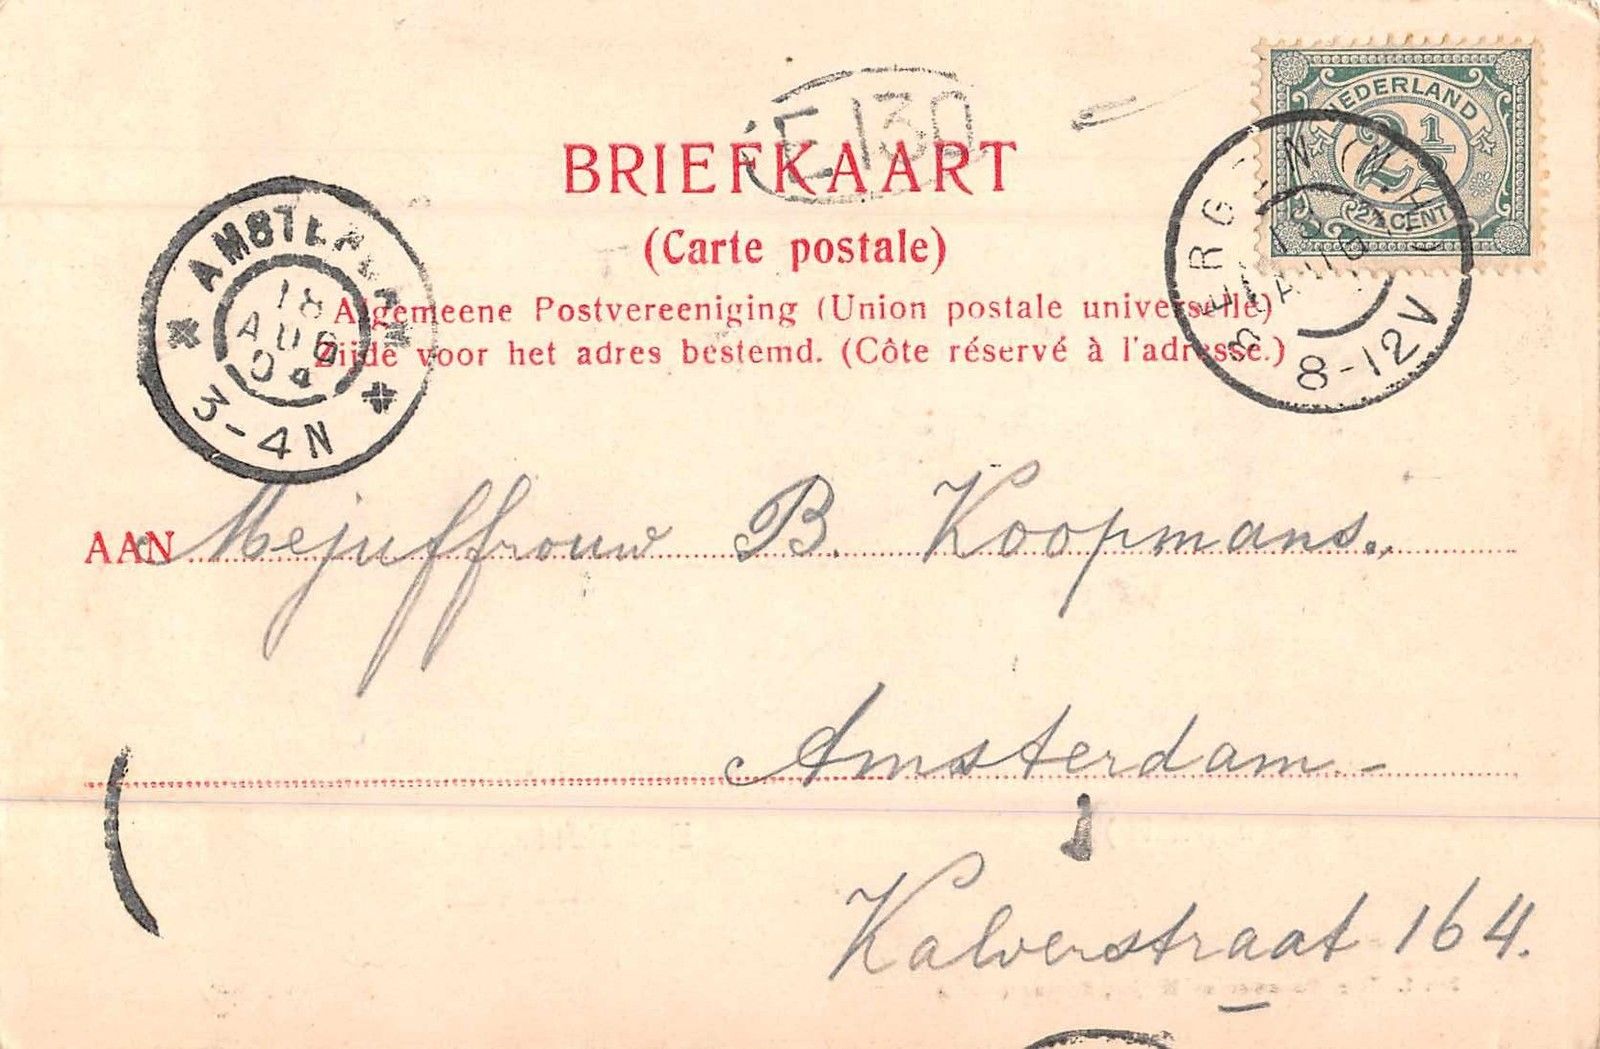 E 130
NEDERLAND
2½
2½ CENT
BRIEFKAART
(Carte postale)
BERGEN (N.H.)
AUG
8-12V
AMSTERDAM
18
AUG
04
3-4N
Algemeene Postvereeniging (Union postale universelle)
Zijde voor het adres bestemd. (Côte réservé à l'adresse.)
AAN Mejuffrouw B. Koopmans.
Amsterdam.-
1
Kalverstraat 164.